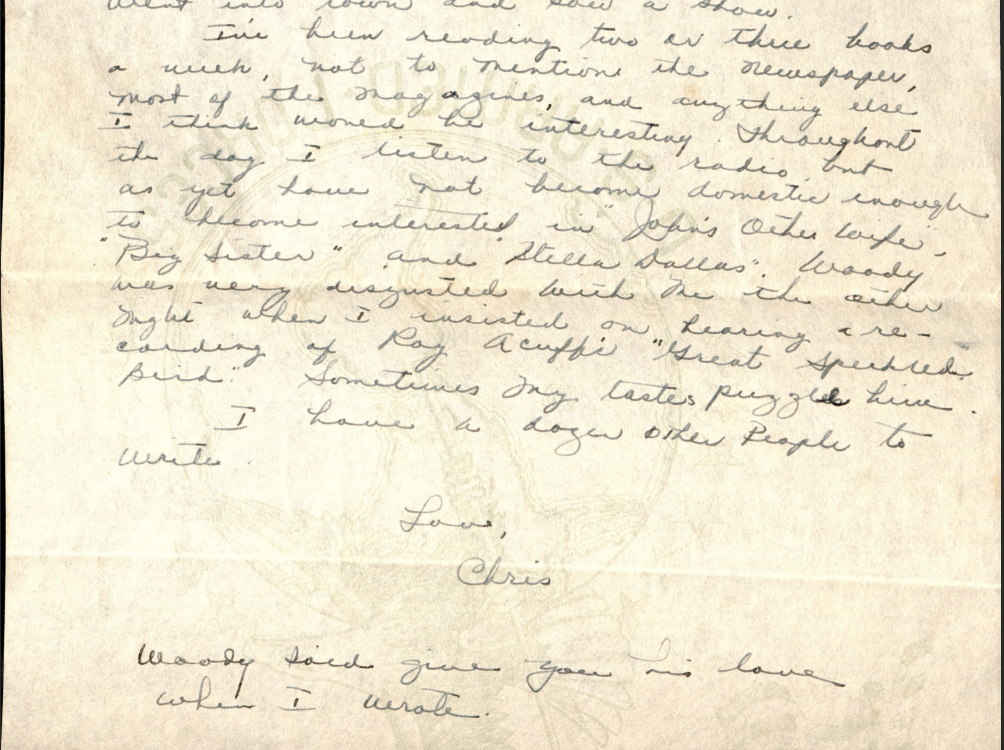 went into town and saw a show.
I've been reading two or three books
a week, not to mention the newspaper,
most of the magazines, and anything else
I think would be interesting. Throughout
the day I listen to the radio, but
as yet have not become domestic enough
to become interested in "John's Other Wife,
"Big Sister" and "Stella Dallas". Woody
was very disgusted with me the other
night when I insisted on hearing a re-
cording of Roy Acuff's "Great Speckled
Bird." Sometimes my tastes puzzle him.
I have a dozen other people to
write.
Love,
Chris
Woody said give you his love
when I wrote.